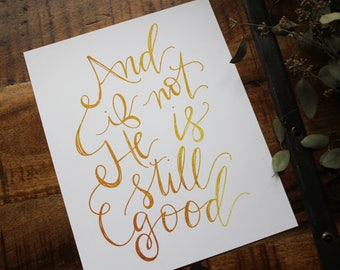 And
if not
He is
still
good